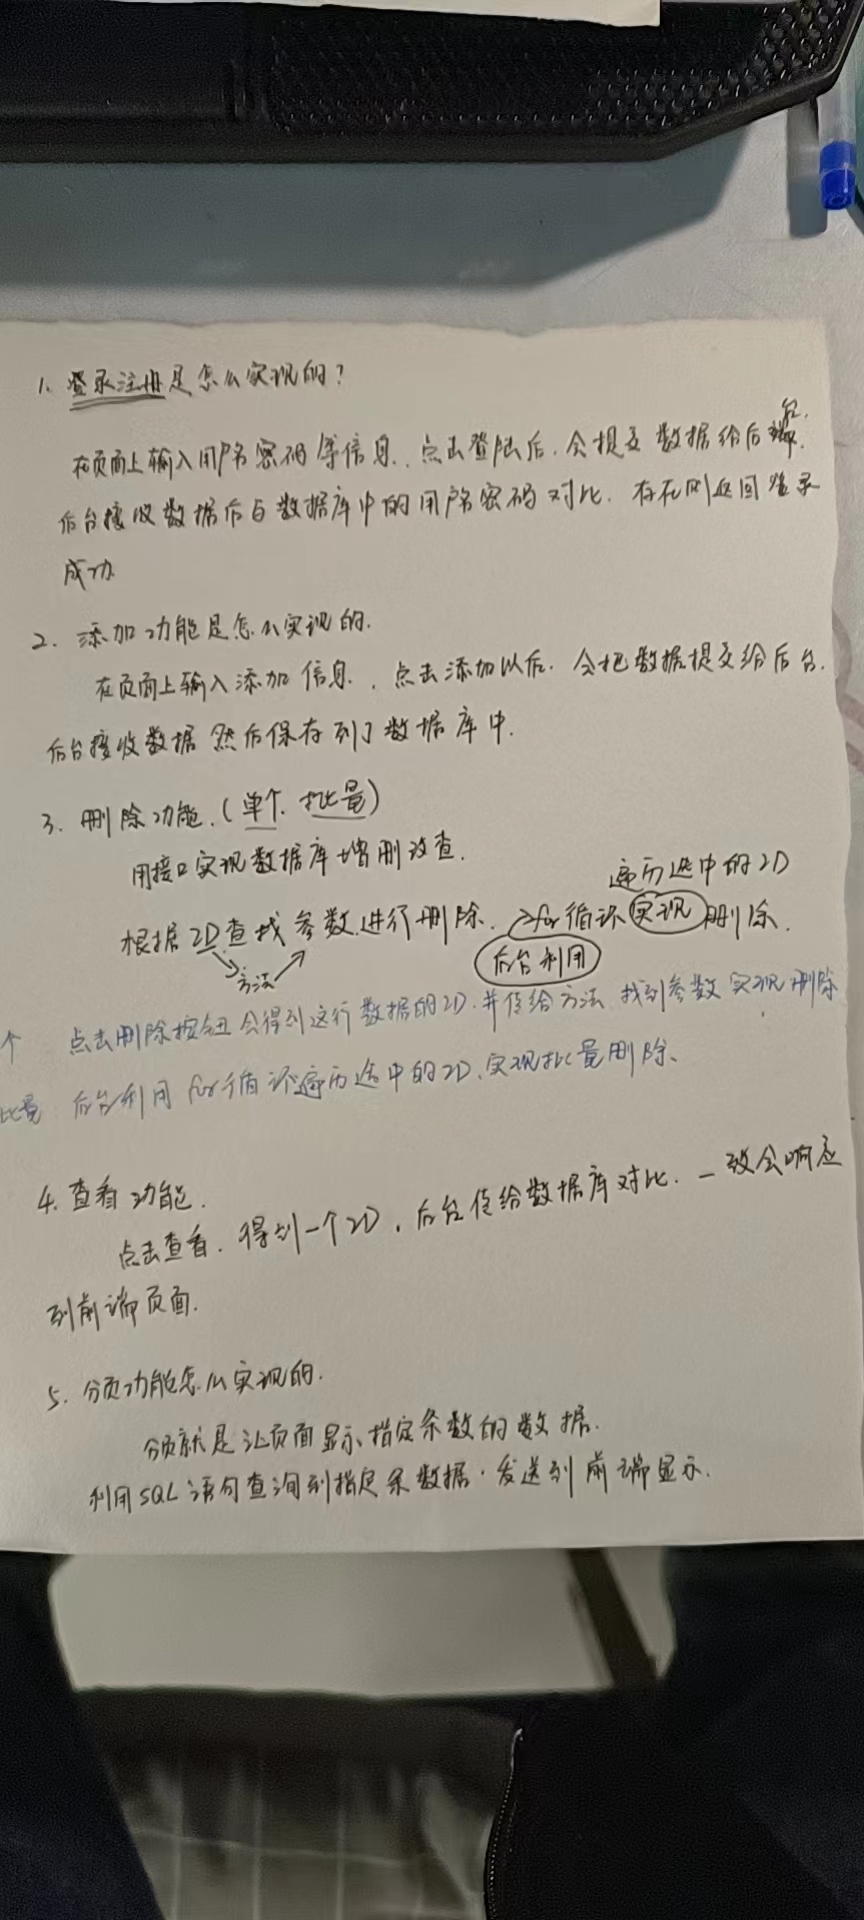 1. 登录注册是怎么实现的？
在页面上输入用户名密码等信息.点击登陆后.会提交数据给后台.
后台接收数据后与数据库中的用户名密码对比.存在则返回登录
成功
2. 添加功能是怎么实现的.
在页面上输入添加信息.,点击添加以后.会把数据提交给后台.
后台接收数据然后保存到了数据库中.
3. 删除功能.(单个.批量)
用接口实现数据库增删改查.
遍历选中的ID
根据ID查找参数.进行删除. for循环实现删除.
方法 后台利用
个 点击删除按钮会得到这行数据的ID.并传给方法 找到参数实现删除
批量 后台利用for循环遍历选中的ID.实现批量删除、
4. 查看功能.
点击查看.得到一个ID,后台传给数据库对比.一致会响应
到前端页面.
5. 分页功能怎么实现的.
分页就是让页面显示指定条数的数据.
利用SQL语句查询到指定条数据.发送到前端显示.